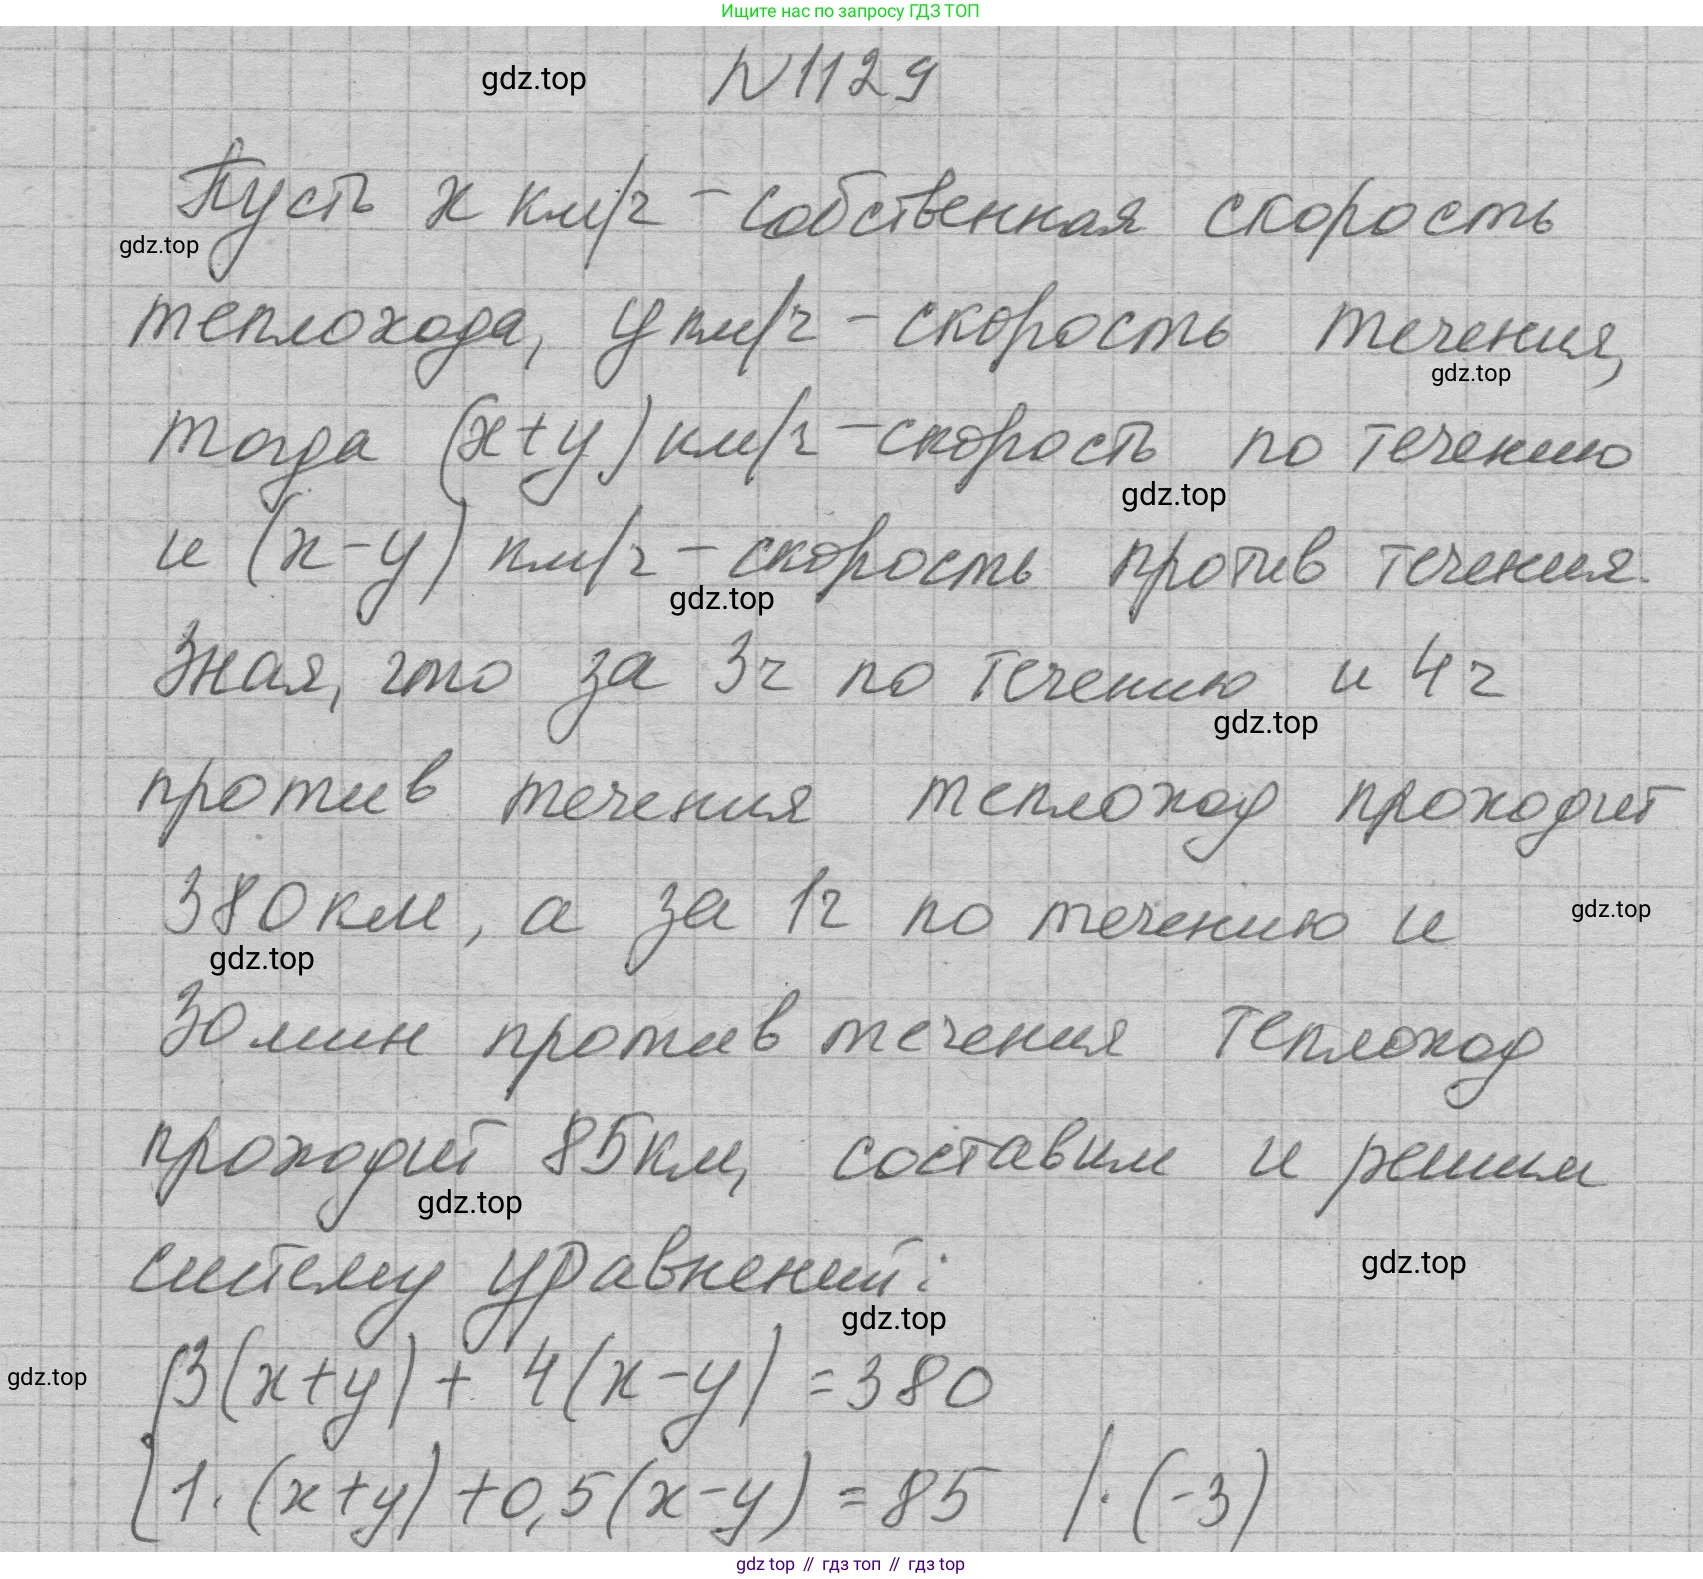 Ищите нас по запросу ГДЗ ТОП
gdz.top
N1129
Пусть x км/ч - собственная скорость
gdz.top
теплохода, y км/ч - скорость течения,
gdz.top
тогда (x+y) км/ч - скорость по течению
gdz.top
и (x-y) км/ч - скорость против течения.
gdz.top
Зная, что за 3ч по течению и 4ч
gdz.top
против течения теплоход проходит
380км, а за 1ч по течению и
gdz.top
gdz.top
30мин против течения теплоход
проходит 85км, составим и решим
gdz.top
систему уравнений:
gdz.top
gdz.top
gdz.top
{3(x+y) + 4(x-y) = 380
1·(x+y) + 0,5(x-y) = 85 /·(-3)
gdz top // гдз топ // гдз top